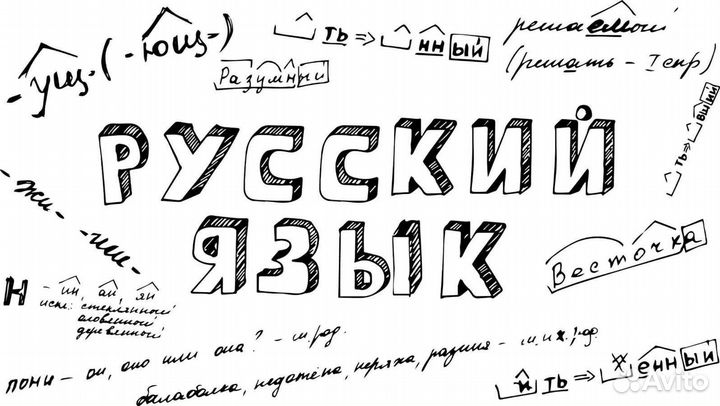 -ущ- (-ющ-)
ть => нный
решаемый
(решать - I спр)
Разумный
ть => вший
РУССКИЙ
ЯЗЫК
-жи- -ши-
Весточка
Н - ин, ан, ян
искл: стеклянный
оловянный
деревянный
пони - он, оно или она? - м.род.
балаболка, недотёпа, неряха, разиня - м. и ж. род.
и ть => енный
Avito